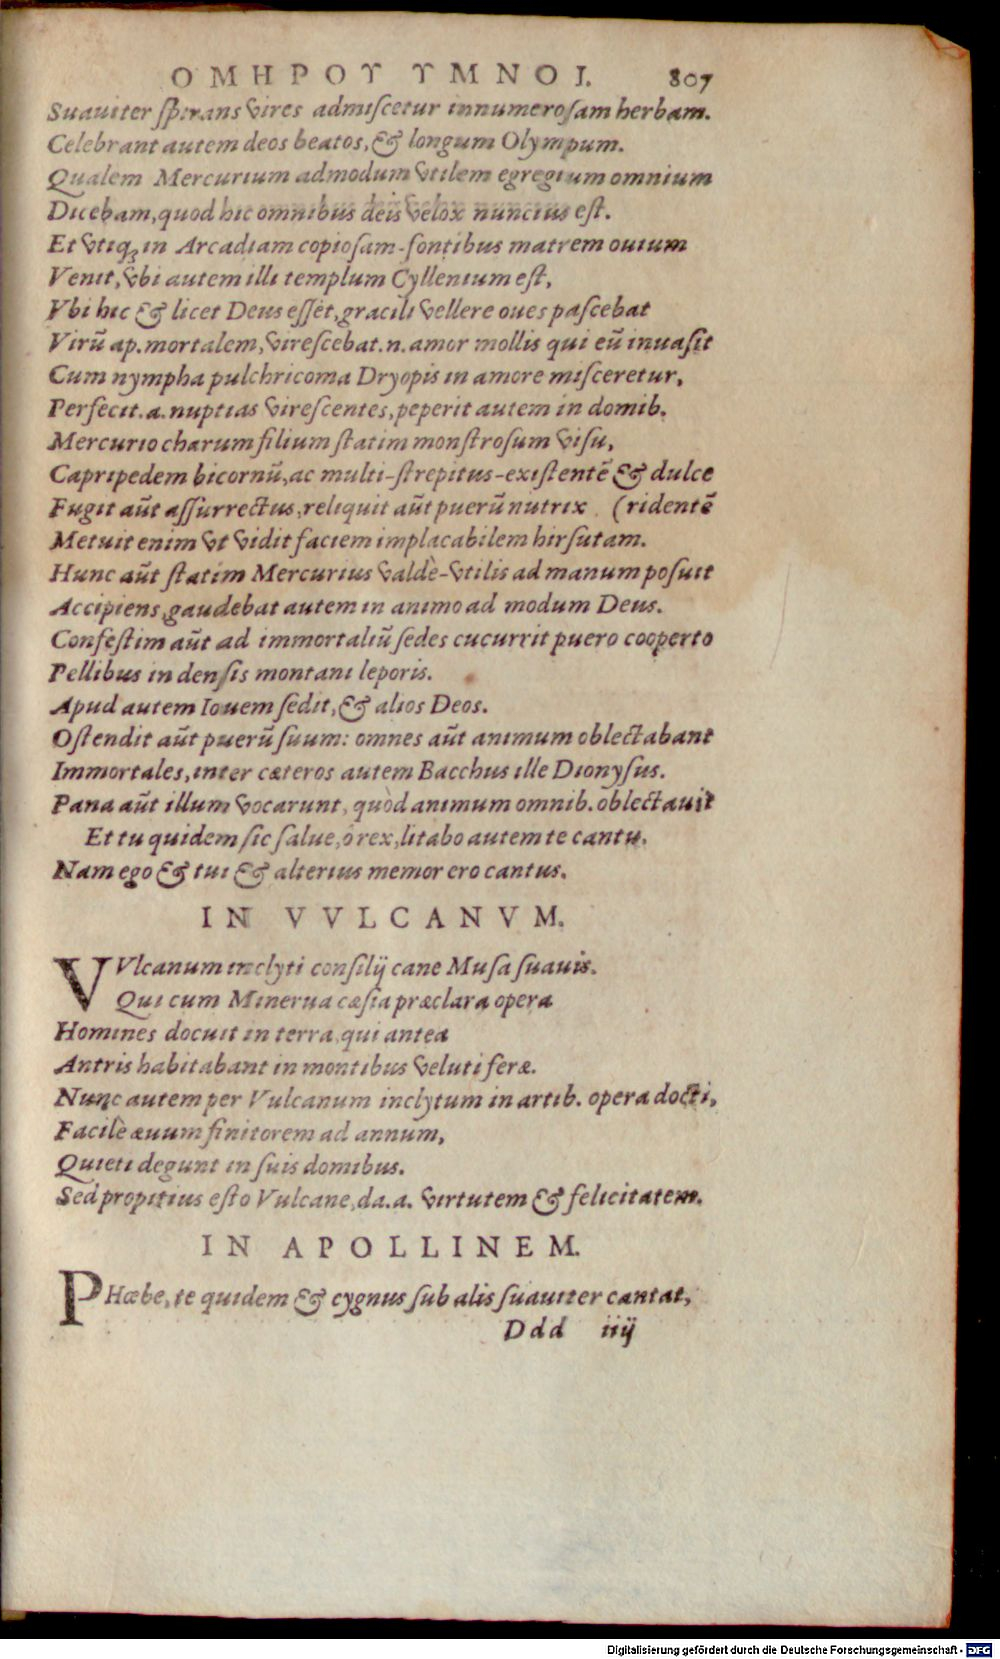 ΟΜΗΡΟΥ ΥΜΝΟΙ. 807
Suauiter spirans vires admiscetur innumerosam herbam.
Celebrant autem deos beatos, & longum Olympum.
Qualem Mercurium admodum vtilem egregium omnium
Dicebam, quod hic omnibus deis velox nuncius est.
Et vtiq; in Arcadiam copiosam-fontibus matrem ouium
Venit, vbi autem illi templum Cyllenium est,
Vbi hic & licet Deus esset, gracili vellere oues pascebat
Virũ ap. mortalem, virescebat .n. amor mollis qui eũ inuasit
Cum nympha pulchricoma Dryopis in amore misceretur,
Perfecit .a. nuptias virescentes, peperit autem in domib.
Mercurio charum filium statim monstrosum visu,
Capripedem bicornũ, ac multi-strepitus-existentẽ & dulce
Fugit aũt assurrectus, reliquit aũt puerũ nutrix (ridentẽ
Metuit enim vt vidit faciem implacabilem hirsutam.
Hunc aũt statim Mercurius valdè-vtilis ad manum posuit
Accipiens, gaudebat autem in animo ad modum Deus.
Confestim aũt ad immortaliũ sedes cucurrit puero cooperto
Pellibus in densis montani leporis.
Apud autem Iouem sedit, & alios Deos.
Ostendit aũt puerũ suum: omnes aũt animum oblectabant
Immortales, inter cæteros autem Bacchus ille Dionysus.
Pana aũt illum vocarunt, quòd animum omnib. oblectauit
Et tu quidem sic salue, ô rex, litabo autem te cantu.
Nam ego & tui & alterius memor ero cantus.
IN VVLCANVM.
VVlcanum inclyti consilij cane Musa suauis.
Qui cum Minerua cæsia præclara opera
Homines docuit in terra, qui antea
Antris habitabant in montibus veluti feræ.
Nunc autem per Vulcanum inclytum in artib. opera docti,
Facilè æuum finitorem ad annum,
Quieti degunt in suis domibus.
Sed propitius esto Vulcane, da .a. virtutem & felicitatem.
IN APOLLINEM.
PHœbe, te quidem & cygnus sub alis suauiter cantat,
Ddd iiij
Digitalisierung gefördert durch die Deutsche Forschungsgemeinschaft - DFG